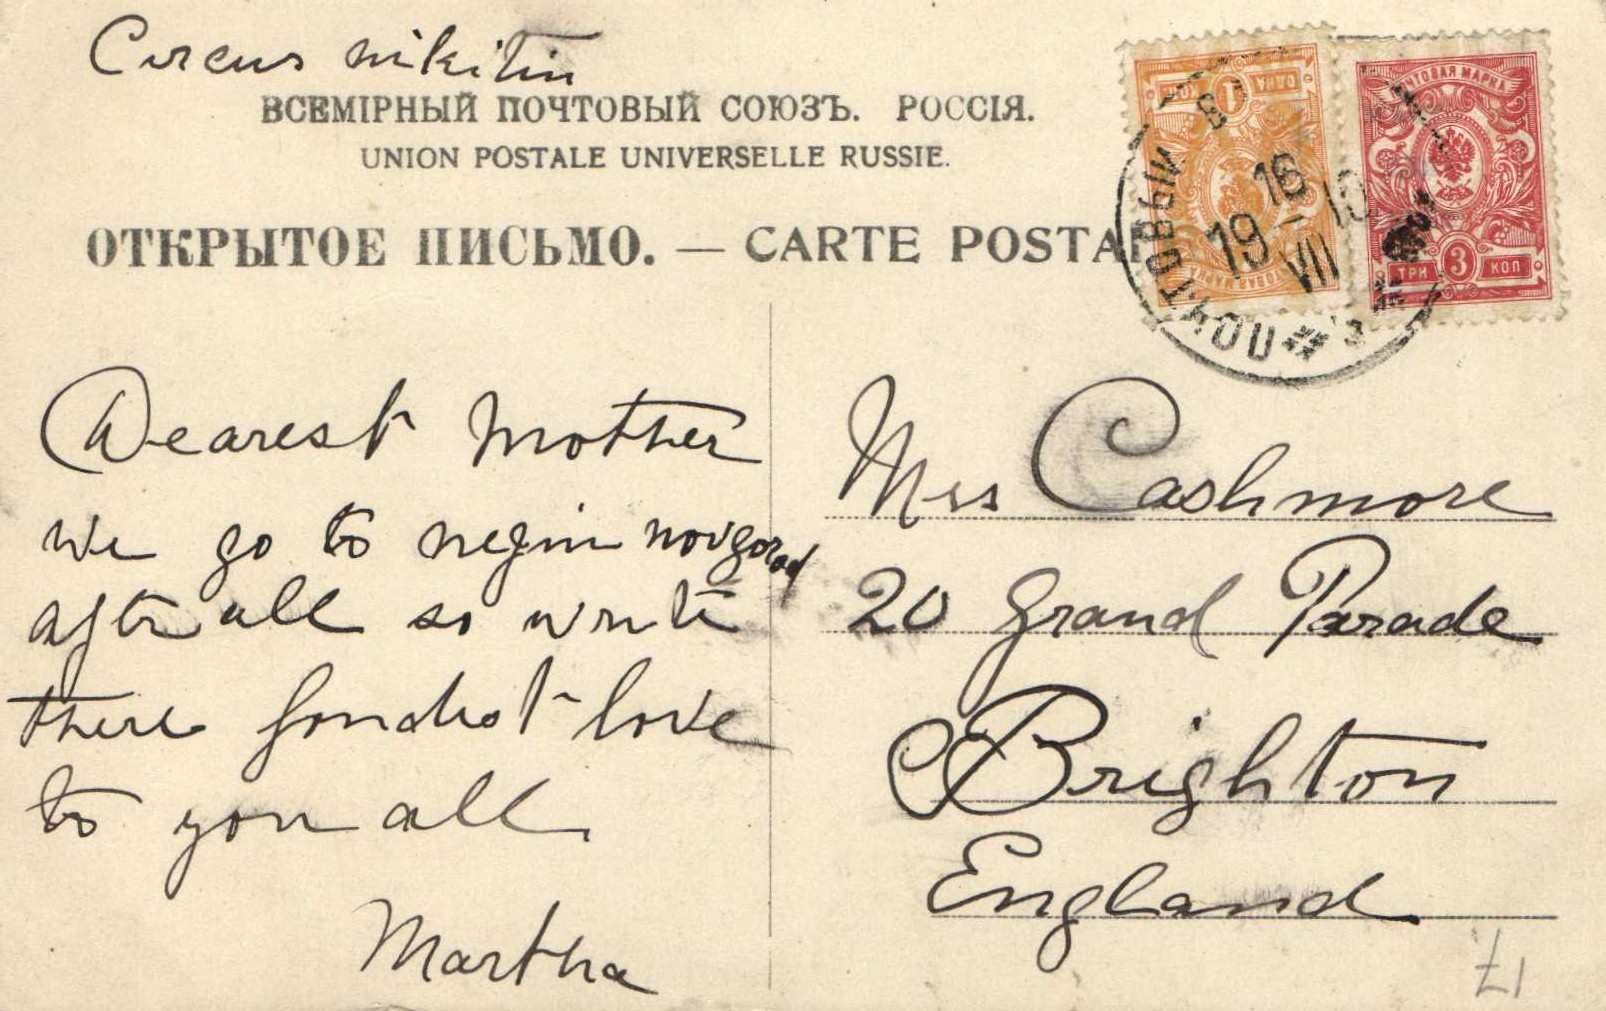 Circus nikitin
ВСЕМІРНЫЙ ПОЧТОВЫЙ СОЮЗЪ. РОССІЯ.
UNION POSTALE UNIVERSELLE RUSSIE.
ОТКРЫТОЕ ПИСЬМО. — CARTE POSTA
ПОЧТОВЫЙ ВА
16
19 - VII 10
ПОЧТОВАЯ МАРКА
ТРИ 3 КОП
1
Dearest Mother
we go to negin novgorod
after all so write
there fondest love
to you all.
Martha
Mrs Cashmore
20 Grand Parade
Brighton
England
£1